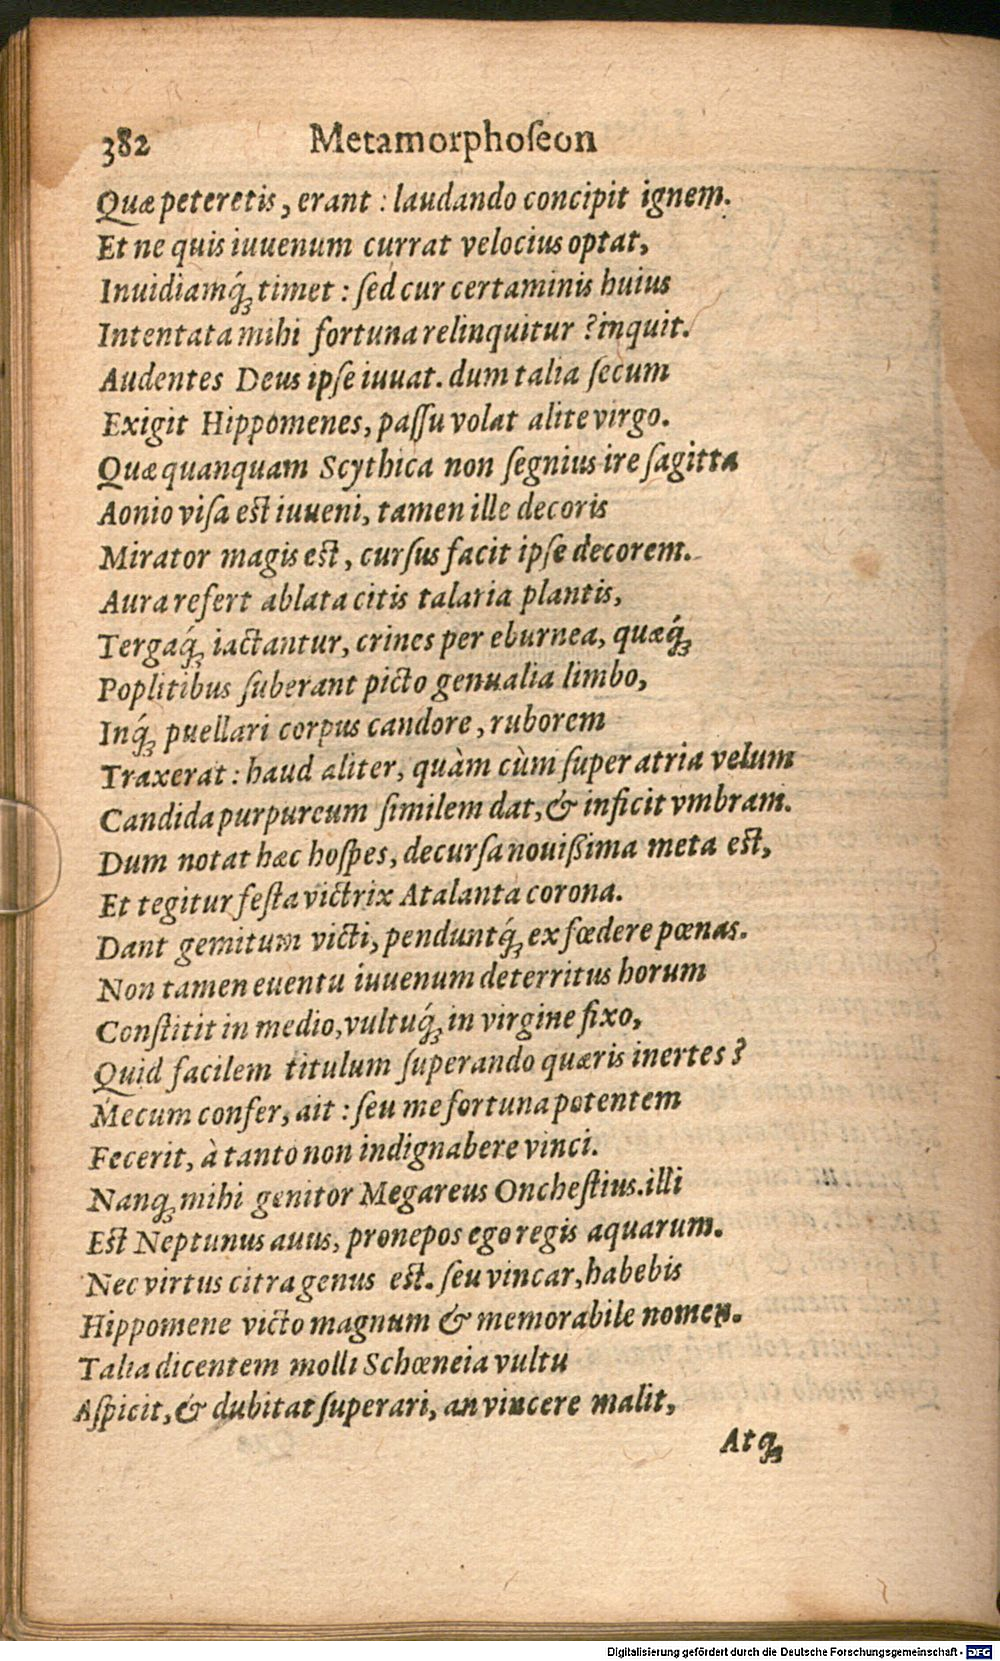 382 Metamorphoſeon
Quæ peteretis, erant : laudando concipit ignem.
Et ne quis iuuenum currat velocius optat,
Inuidiamq́ꝫ timet : ſed cur certaminis huius
Intentata mihi fortuna relinquitur ? inquit.
Audentes Deus ipſe iuuat. dum talia ſecum
Exigit Hippomenes, paſſu volat alite virgo.
Quæ quanquam Scythica non ſegnius ire ſagitta
Aonio viſa eſt iuueni, tamen ille decoris
Mirator magis eſt, curſus facit ipſe decorem.
Aura refert ablata citis talaria plantis,
Tergaq́ꝫ iactantur, crines per eburnea, quæq́ꝫ
Poplitibus ſuberant picto genualia limbo,
Inq́ꝫ puellari corpus candore, ruborem
Traxerat : haud aliter, quàm cùm ſuper atria velum
Candida purpureum ſimilem dat, & inficit vmbram.
Dum notat hæc hoſpes, decurſa nouißima meta eſt,
Et tegitur feſta victrix Atalanta corona.
Dant gemitum victi, penduntq́ꝫ ex fœdere pœnas.
Non tamen euentu iuuenum deterritus horum
Conſtitit in medio, vultuq́ꝫ in virgine fixo,
Quid facilem titulum ſuperando quæris inertes ?
Mecum confer, ait : ſeu me fortuna potentem
Fecerit, à tanto non indignabere vinci.
Nanqꝫ mihi genitor Megareus Oncheſtius. illi
Eſt Neptunus auus, pronepos ego regis aquarum.
Nec virtus citra genus eſt. ſeu vincar, habebis
Hippomene victo magnum & memorabile nomen.
Talia dicentem molli Schœneia vultu
Aſpicit, & dubitat ſuperari, an vincere malit,
Atqꝫ
Digitalisierung gefördert durch die Deutsche Forschungsgemeinschaft - DFG